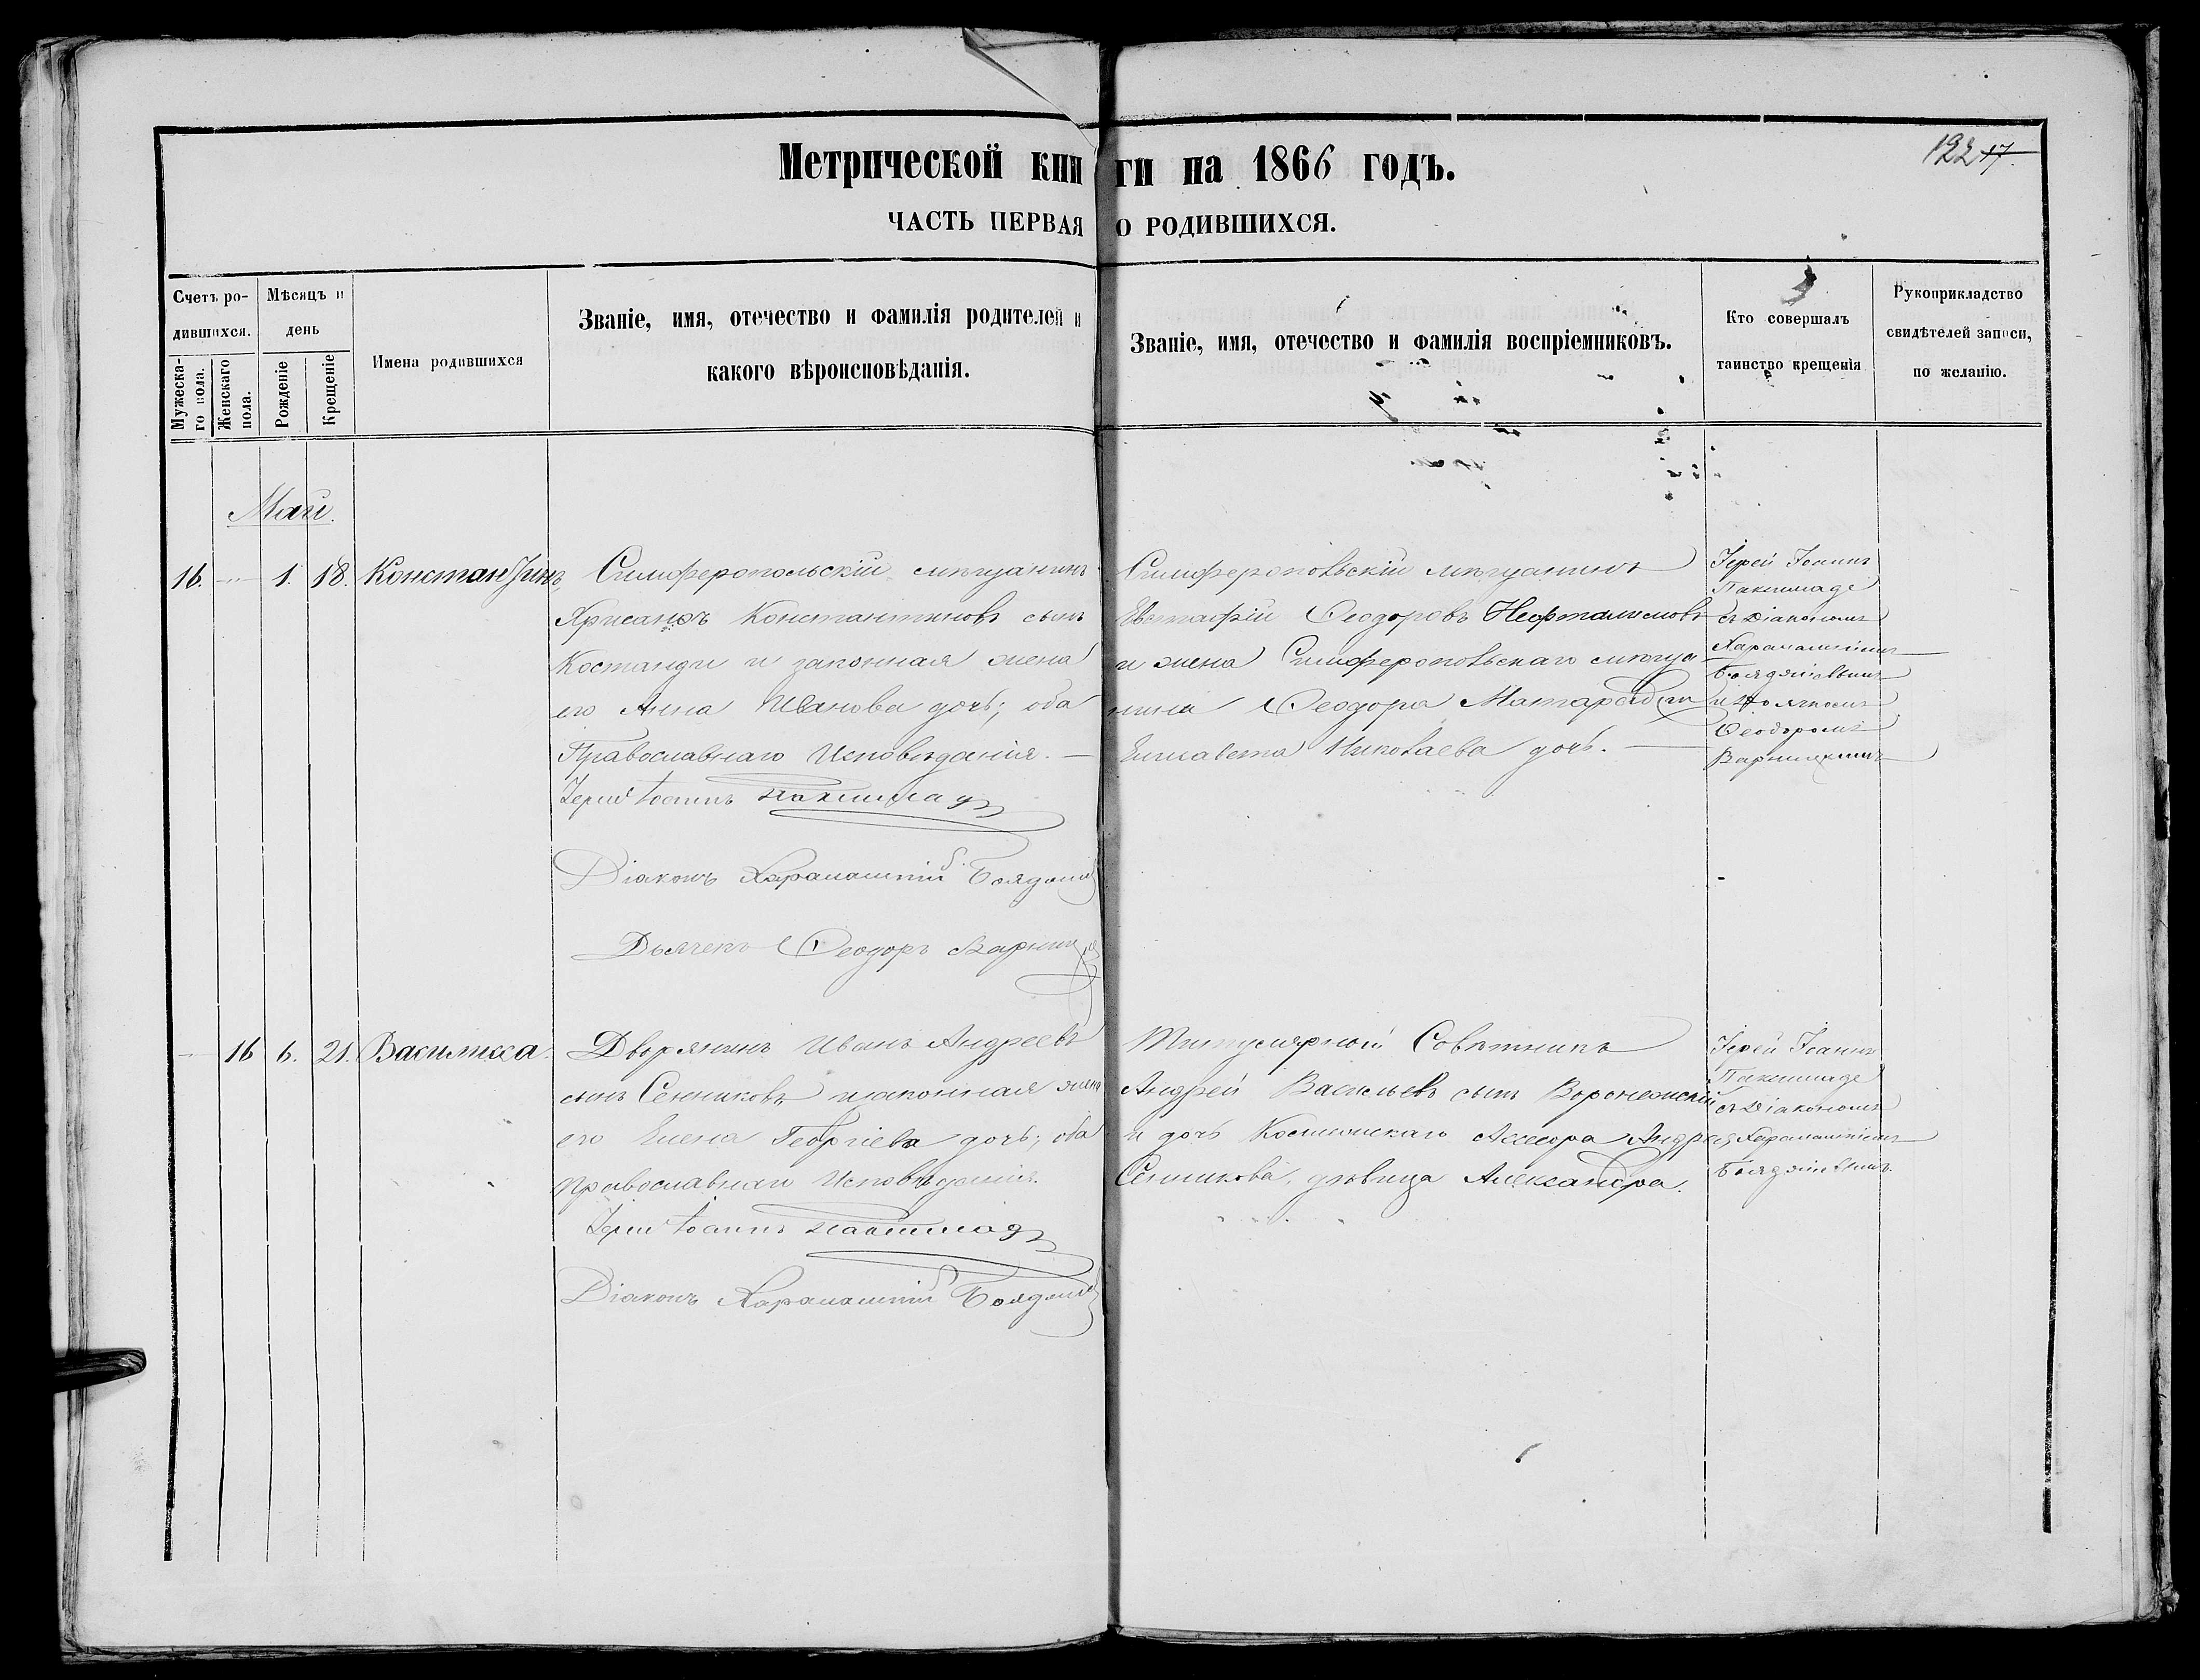 Метрической книги на 1866 годъ.
122 17.
ЧАСТЬ ПЕРВАЯ О РОДИВШИХСЯ.
Счетъ родившихся.
Мужескаго пола.
Женскаго пола.
Мѣсяцъ и день
Рожденіе
Крещеніе
Имена родившихся
Званіе, имя, отечество и фамилія родителей и
какого вѣроисповѣданія.
Званіе, имя, отечество и фамилія воспріемниковъ.
Кто совершалъ
таинство крещенія
Рукоприкладство
свидѣтелей записи,
по желанію.
Май.
16. — 1. 18. Константинъ,
Симферопольскій мѣщанинъ
Хрисанѳъ Константиновъ сынъ
Костанди и законная жена
его Анна Иванова дочь; оба
Православнаго Исповѣданія. —
Іерей Іоаннъ
Діаконъ Харалампій
Дьячекъ Ѳеодоръ
Симферопольскій мѣщанинъ
Евстафій Ѳеодоровъ
и жена Симферопольскаго мѣща
нина Ѳеодора
Елисавета Николаева дочь. —
Іерей Іоаннъ
Пакшимаде
съ Діакономъ
Харалампіемъ
и Дьячкомъ
Ѳеодоромъ
— 16 6. 21. Василисса.
Дворянинъ Иванъ Андреевъ
сынъ Сенниковъ и законная жена
его Елена Георгіева дочь; оба
православнаго Исповѣданія.
Іерей Іоаннъ
Діаконъ Харалампій
Титулярной Совѣтникъ
Андрей Васильевъ сынъ Воронежскій
и дочь Коллежскаго Асессора Андрея
Сенникова, дѣвица Александра.
Іерей Іоаннъ
Пакшимаде
съ Діакономъ
Харалампіемъ